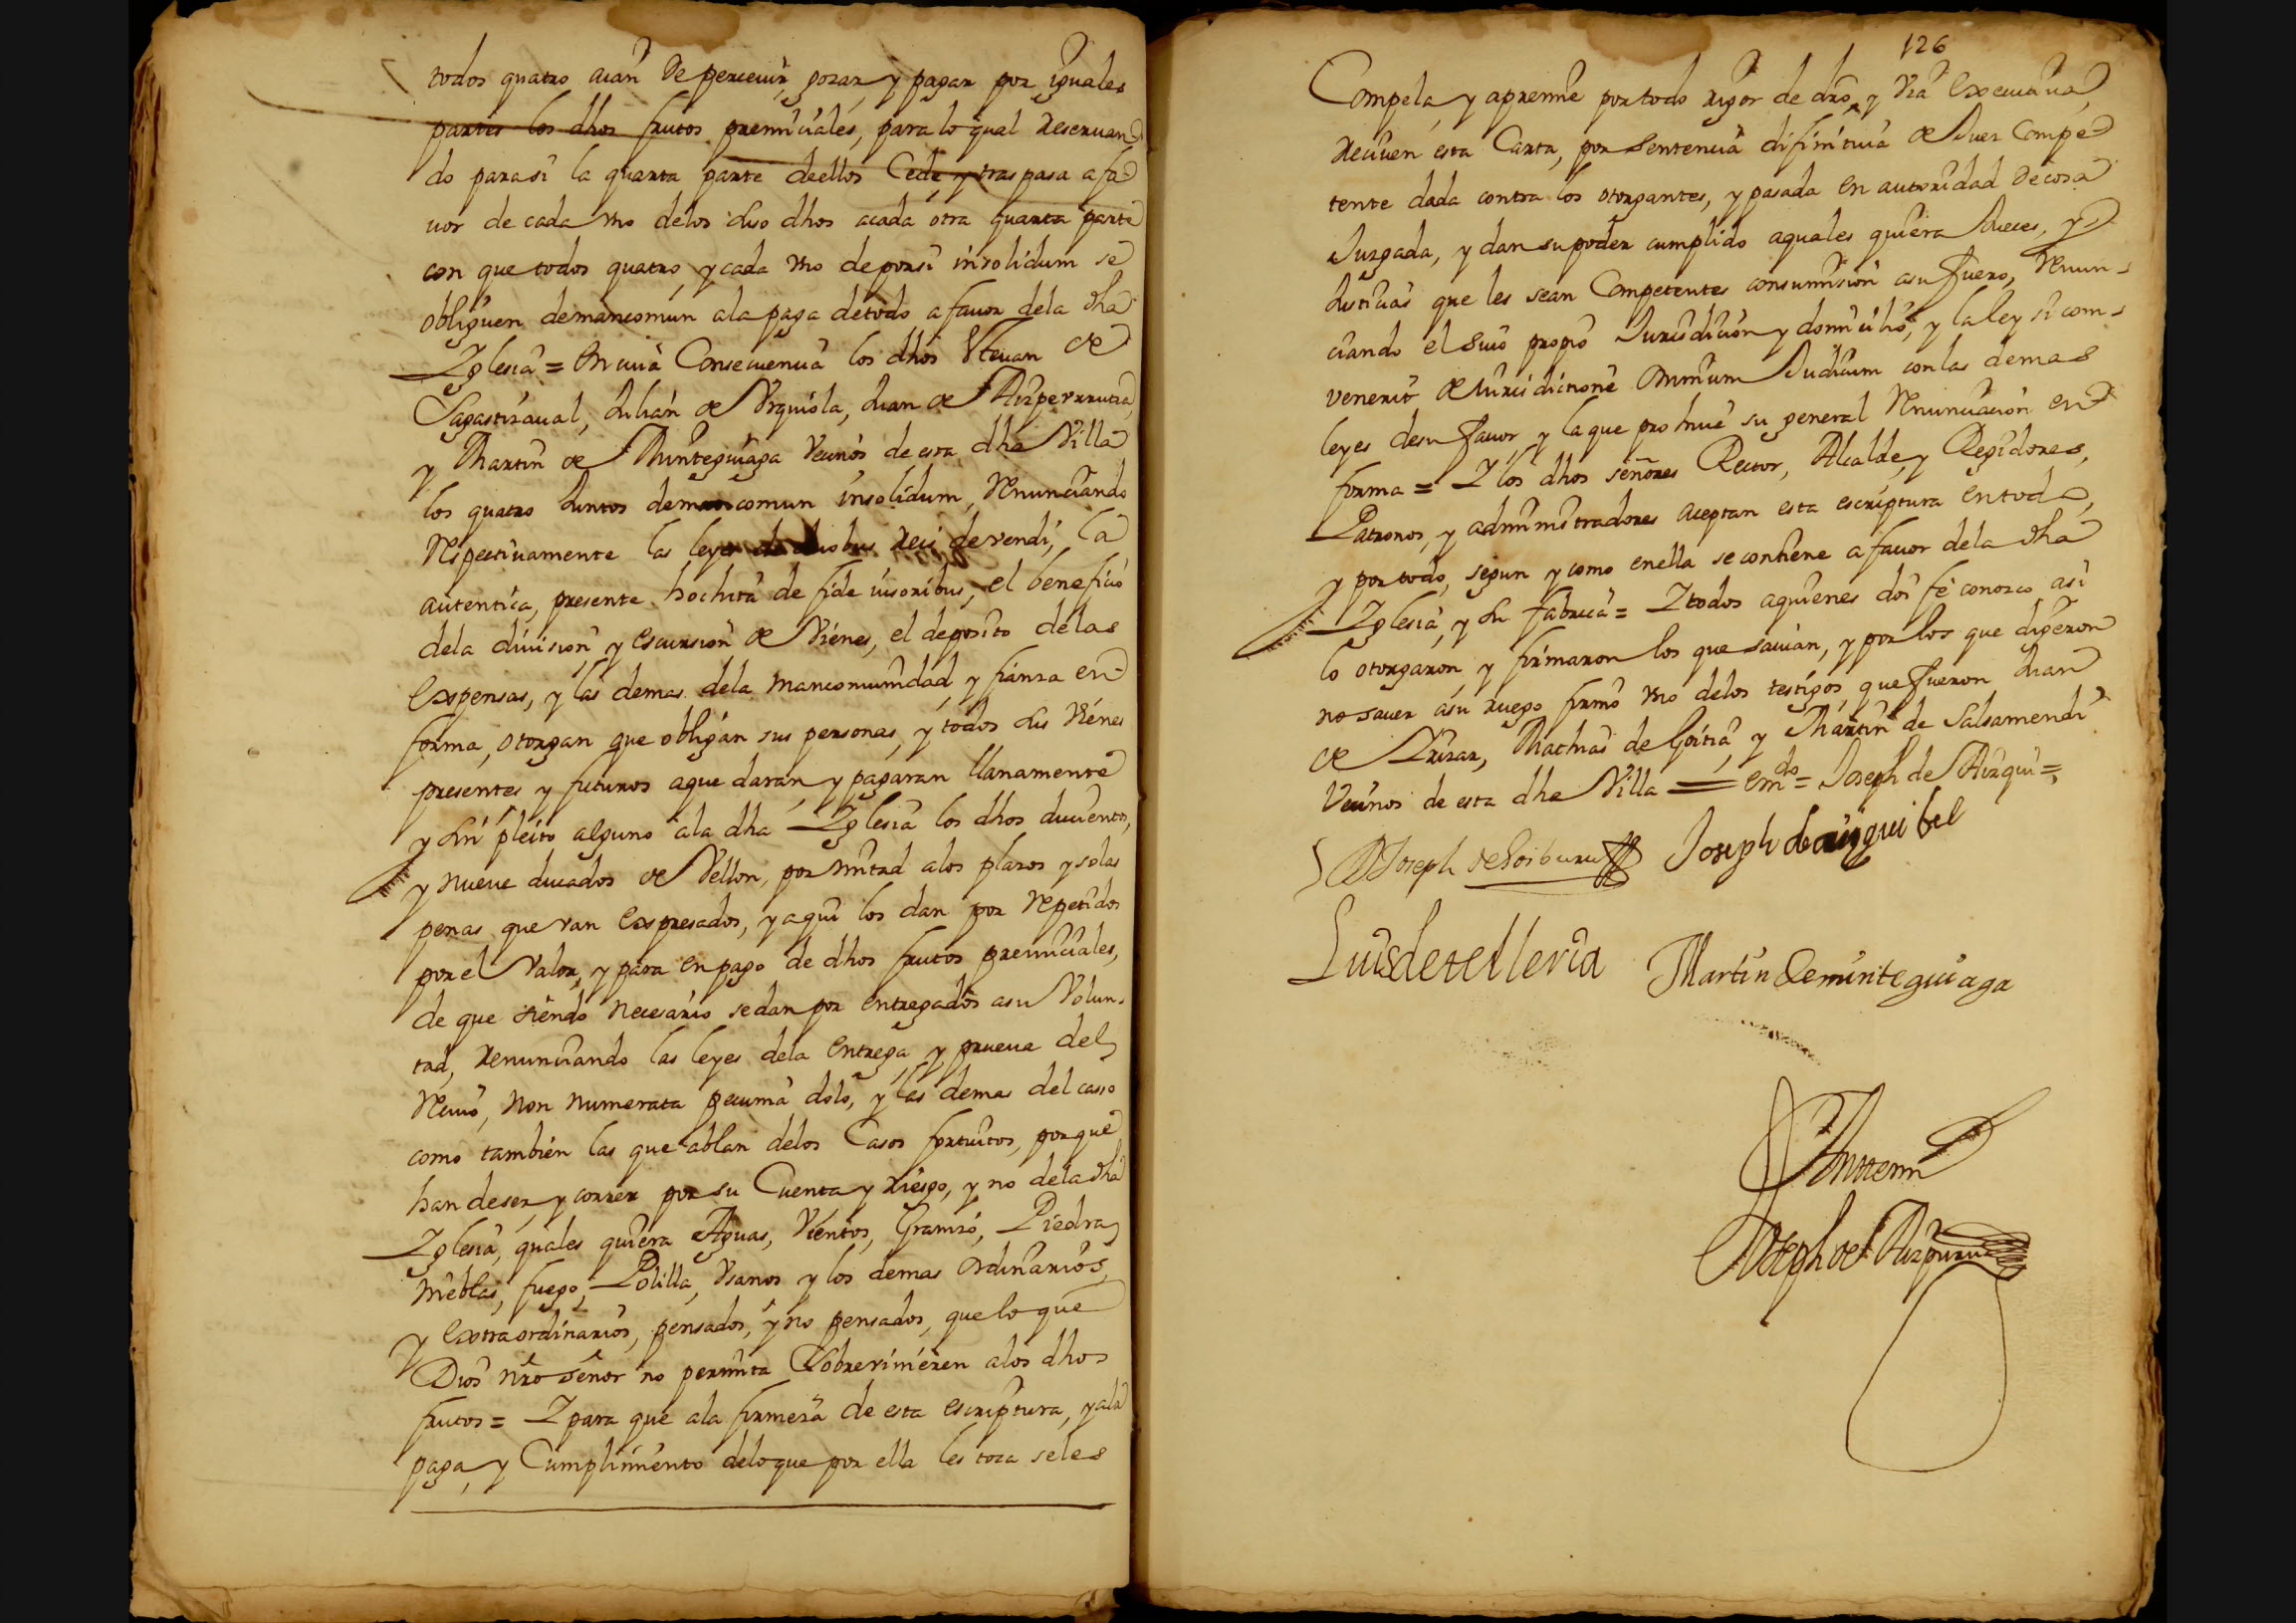 todos quatro aian de perceuir, gozar, y pagar por iguales
partes los dhos frutos premiciales, para lo qual reseruan-
do parasi la quarta parte deellos Cede, y traspasa afa
uor de cada vno delos suso dhos acada otra quarta parte
con que todos quatro, y cada vno deporsi insolidum se
obliguen demancomun ala paga detodo afauor dela dha
Yglesia = En cuia Consecuencia los dhos Steuan de
Sagastizaual, Julian de Vrquiola, Juan de Aizperrrutia,
y Martin de Munteguiaga Vecinos de esta dha Villa
los quatro Juntos demancomun insolidum, Renunciando
Respectiuamente las leyes de duobus reis devendi, la
autentica, presente hochita de fide iusoribus, el beneficio
dela diuision, y escursion de Vienes, el deposito delas
Expensas, y las demas dela mancomunidad, y fianza en
forma, otorgan que obligan sus personas, y todos sus Vienes
presentes y futuros aque daran, y pagaran llanamente
y sin pleito alguno ala dha Yglesia los dhos ducientos,
y nueue ducados de Vellon, por mitad alos plazos y solas
penas que van expresados, y aqui los dan por repetidos
por el valor, y para en pago de dhos frutos premiciales,
de que siendo necesario sedan por entregados asu Volun-
tad, renunciando las leyes dela entrega, y prueua del
Reciuo, non numerata pecunia dolo, y las demas del casso
como tambien las que ablan delos Casos fortuitos, porque
han deser, y correr por su Cuenta y riesgo, y no dela dha
Yglesia, quales quiera Aguas, Vientos, Granizo, Piedra,
nieblas, fuego, Polilla, Vsanos y los demas ordinarios,
y extraordinarios, pensados, y no pensados, que lo que
Dios nro señor no permita Sobreviniezen alos dhos
frutos = Y para que ala firmeza de esta escriptura, yala
paga, y Cumplimiento deloque por ella les toca seles
126
Compela, y apremie portodo rigor de dro, y via executiua,
reciuen esta Carta, por sentencia difinitiua de Juez Compe
tente dada contra los otorgantes, y pasada en autoridad decosa
Juzgada, y dan supoder cumplido aquales quiera Jueces, y
Justicias que les sean Competentes consumision asu fuero, renun-
ciando el suio propio Jurisdicion, y domicilio, y la ley si com-
venerit de Jurisdictione omnium Judicum con las demas
leyes desu fauor, y la que prohiue su general renunciacion en
forma = Y los dhos señores Rector, Alcalde, y Regidores,
Patronos, y administradores aceptan esta escriptura en todo,
y por todo, segun y como enella se contiene afauor dela dha
Yglesia, y su fabrica = Y todos aquienes doi fe conozco asi
lo otorgaron, y firmaron los que sauian, y por los que dijeron
no sauer asu ruego firmo vno delos testigos, que fueron Juan
de Yrizar, Mathias de Goitia, y Martin de Salsamendi
Vecinos de esta dha Villa = emdo = Joseph de Aizqui =,
Joseph de aizqui bel
Luis de telleria Martin de munteguiaga
Antemi
Joseph de Aizpuru